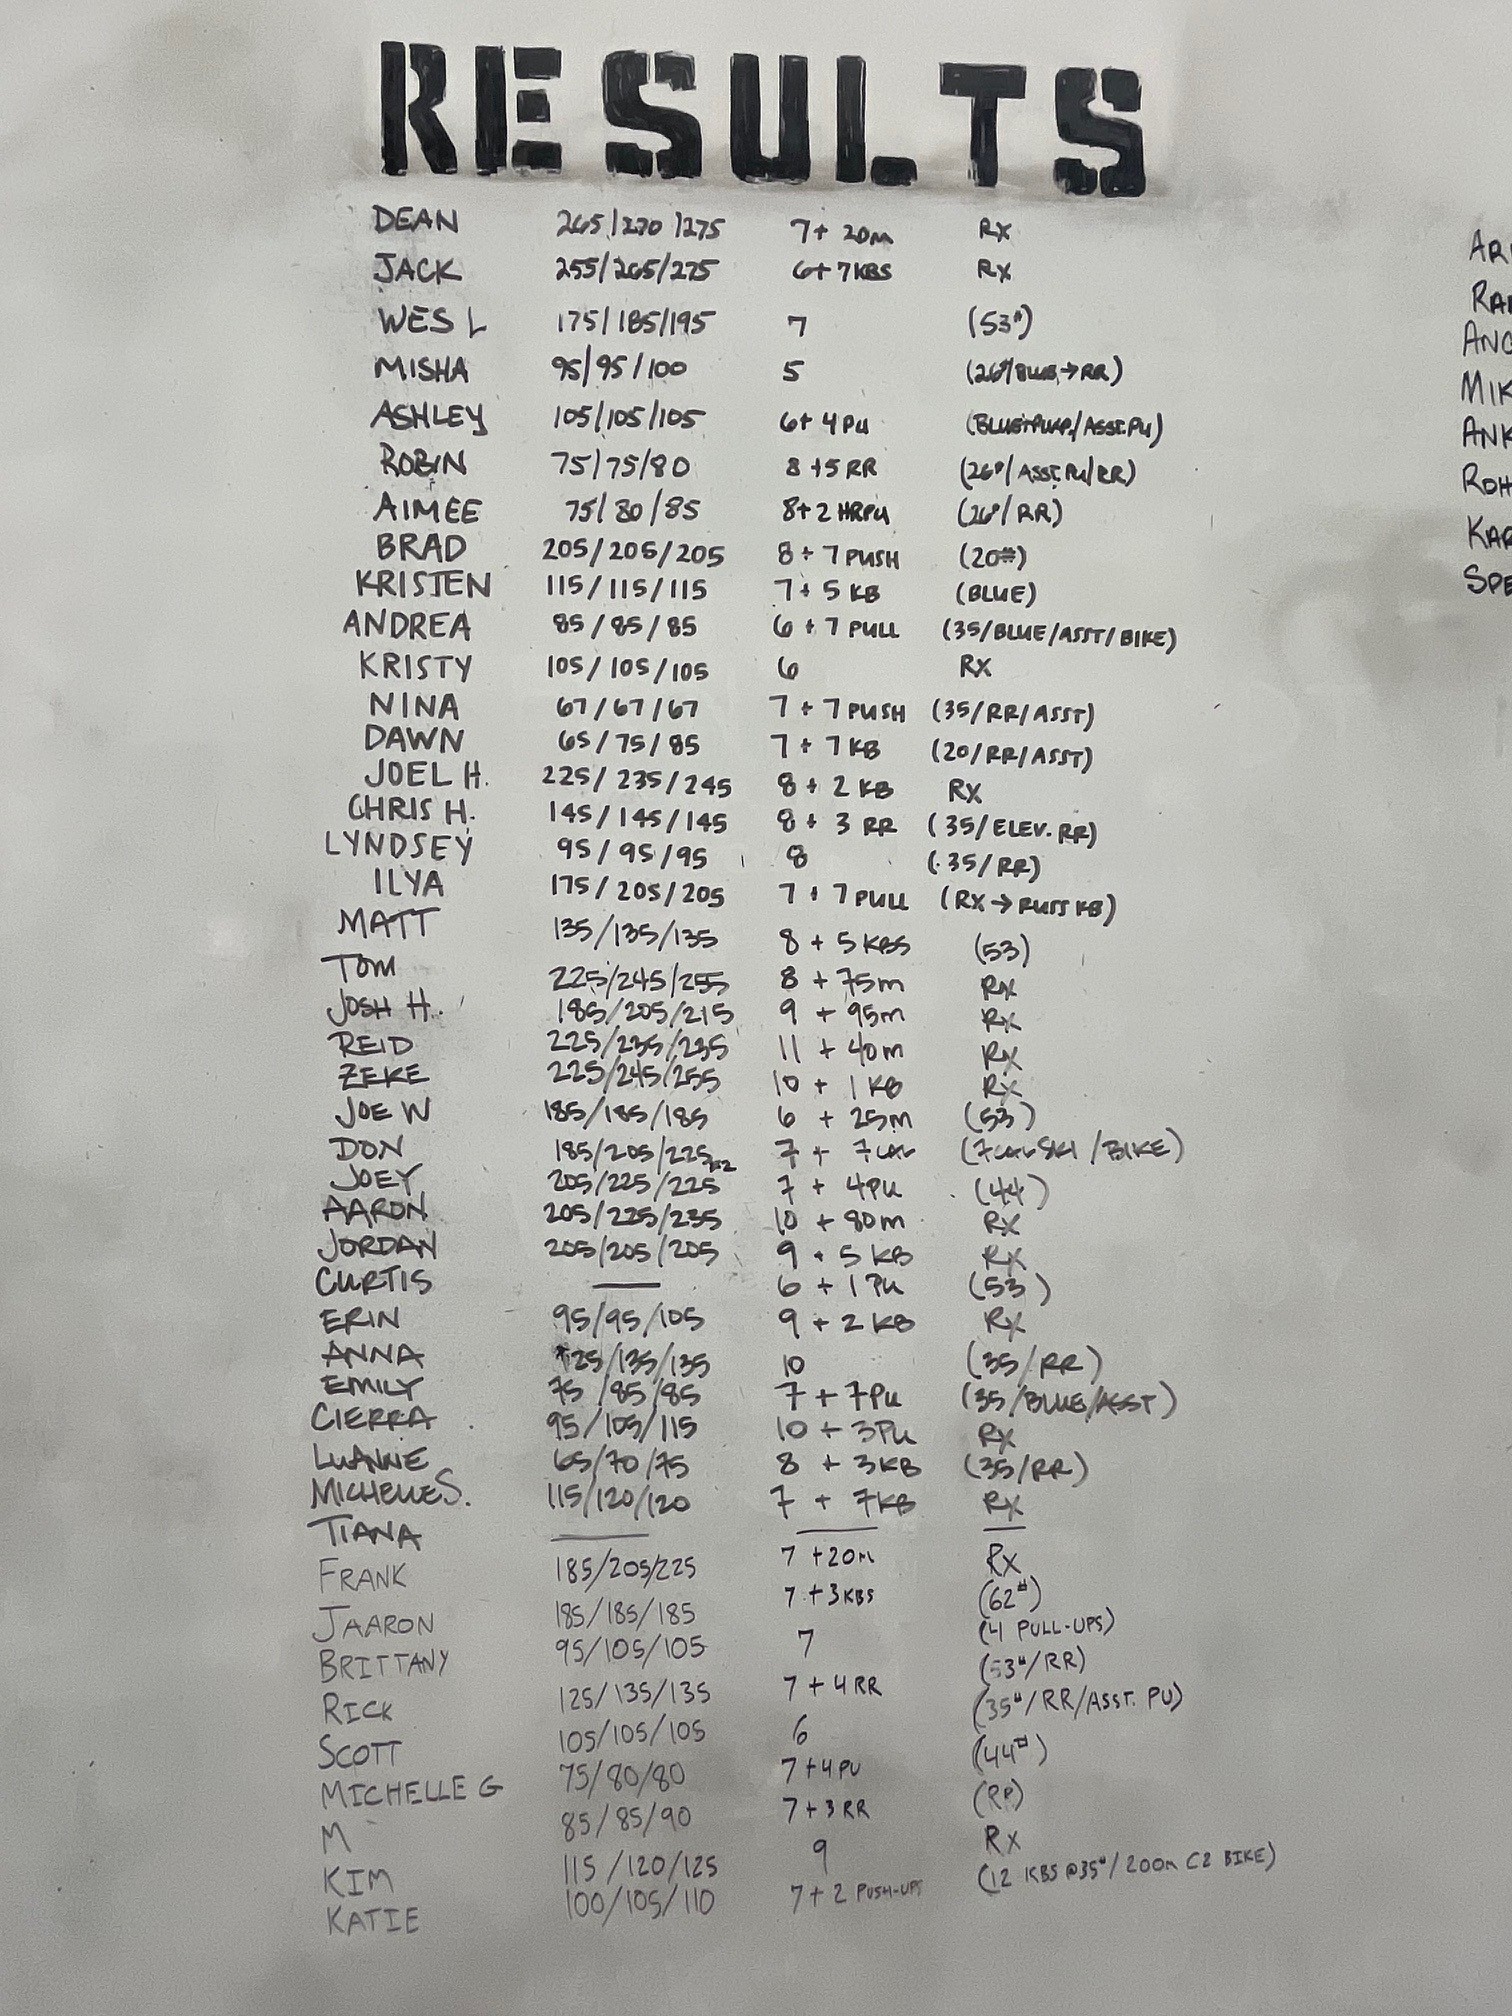 RESULTS
DEAN 265/270/275 7+ 20m Rx
JACK 255/265/275 6+7KBS Rx
WES L 175/185/195 7 (53#)
MISHA 95/95/100 5 (26#/BLUE→RR)
ASHLEY 105/105/105 6+ 4PU
ROBIN 75/75/80 8 +5 RR (26#/ASST.PU/RR)
AIMEE 75/80/85 8+2 HRPU (26#/RR)
BRAD 205/205/205 8 + 7 PUSH (20#)
KRISTEN 115/115/115 7 + 5 KB (BLUE)
ANDREA 85/85/85 6 + 7 PULL (35/BLUE/ASST/BIKE)
KRISTY 105/105/105 6 RX
NINA 67/67/67 7 + 7 PUSH (35/RR/ASST)
DAWN 65/75/85 7 + 7 KB (20/RR/ASST)
JOEL H. 225/235/245 8 + 2 KB RX
CHRIS H. 145/145/145 8 + 3 RR (35/ELEV. RR)
LYNDSEY 95/95/95 8 (35/RR)
ILYA 175/205/205 7 + 7 PULL (RX→RUSS KB)
MATT 135/135/135 8 + 5 KBS (53)
TOM 225/245/255 8 + 75m Rx
JOSH H. 185/205/215 9 + 95m Rx
REID 225/235/235 11 + 40m Rx
ZEKE 225/245/255 10 + 1 KB Rx
JOE W 185/185/185 6 + 25m (53)
DON 185/205/225x2 7 + 7CAL (7CAL SKI/BIKE)
JOEY 205/225/225 7 + 4PU (44)
AARON 205/225/235 10 + 80m Rx
JORDAN 205/205/205 9 + 5 KB Rx
CURTIS — 6 + 1 PU (53)
ERIN 95/95/105 9 + 2 KB Rx
ANNA 125/135/135 10 (35/RR)
EMILY 75/85/85 7 + 7PU (35/BLUE/ASST)
CIERRA 95/105/115 10 + 3PU Rx
LUANNE 65/70/75 8 + 3KB (35/RR)
MICHELLE S. 115/120/120 7 + 7KB Rx
TIANA — — —
FRANK 185/205/225 7 +20m Rx
JAARON 185/185/185 7 +3KBS (62#)
BRITTANY 95/105/105 7 (4 PULL-UPS)
RICK 125/135/135 7 +4RR (53#/RR)
SCOTT 105/105/105 6 (35#/RR/ASST. PU)
MICHELLE G 75/80/80 7+4PU (44#)
M 85/85/90 7+3RR (RR)
KIM 115/120/125 9 Rx
KATIE 100/105/110 7+2 PUSH-UPS (12 KBS @35#/200m C2 BIKE)
ARI
RA
ANG
MIK
ANK
ROH
KAR
SPE